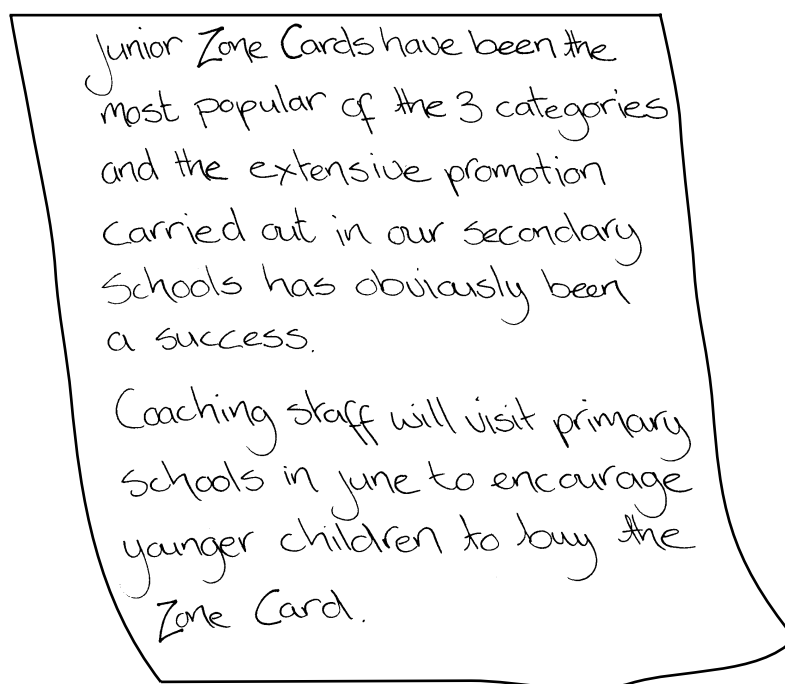 Junior Zone Cards have been the
most popular of the 3 categories
and the extensive promotion
carried out in our secondary
Schools has obviously been
a success.
Coaching staff will visit primary
schools in june to encourage
younger children to buy the
Zone Card.